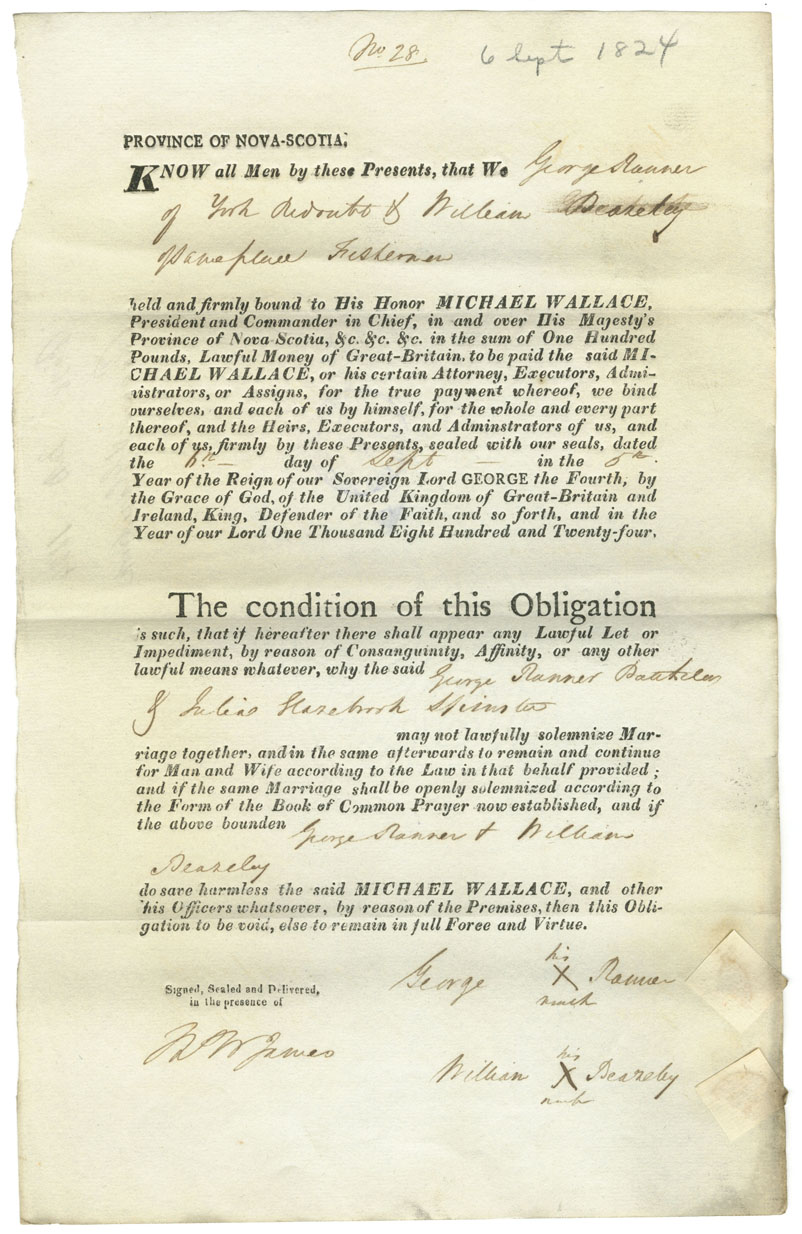 No. 28. 6 Sept 1824
PROVINCE OF NOVA-SCOTIA.
KNOW all Men by these Presents, that We George Ranner
of York Redoubt & William Beazeley
of same place Fishermen
held and firmly bound to His Honor MICHAEL WALLACE,
President and Commander in Chief, in and over His Majesty's
Province of Nova Scotia, &c. &c. &c. in the sum of One Hundred
Pounds, Lawful Money of Great-Britain, to be paid the said MI-
CHAEL WALLACE, or his certain Attorney, Executors, Admi-
nistrators, or Assigns, for the true payment whereof, we bind
ourselves, and each of us by himself, for the whole and every part
thereof, and the Heirs, Executors, and Adminstrators of us, and
each of us, firmly by these Presents, sealed with our seals, dated
the 6th day of Sept in the 5th
Year of the Reign of our Sovereign Lord GEORGE the Fourth, by
the Grace of God, of the United Kingdom of Great-Britain and
Ireland, King, Defender of the Faith, and so forth, and in the
Year of our Lord One Thousand Eight Hundred and Twenty-four.
The condition of this Obligation
is such, that if hereafter there shall appear any Lawful Let or
Impediment, by reason of Consanguinity, Affinity, or any other
lawful means whatever, why the said George Ranner Batchelor
& Julia Hazebrook Spinster
may not lawfully solemnize Mar-
riage together, and in the same afterwards to remain and continue
for Man and Wife according to the Law in that behalf provided;
and if the same Marriage shall be openly solemnized according to
the Form of the Book of Common Prayer now established, and if
the above bounden George Ranner & William
Beazeley
do save harmless the said MICHAEL WALLACE, and other
his Officers whatsoever, by reason of the Premises, then this Obli-
gation to be void, else to remain in full Force and Virtue.
his
George X Ranner
mark
Signed, Sealed and Delivered,
in the presence of
W James
his
William X Beazeley
mark